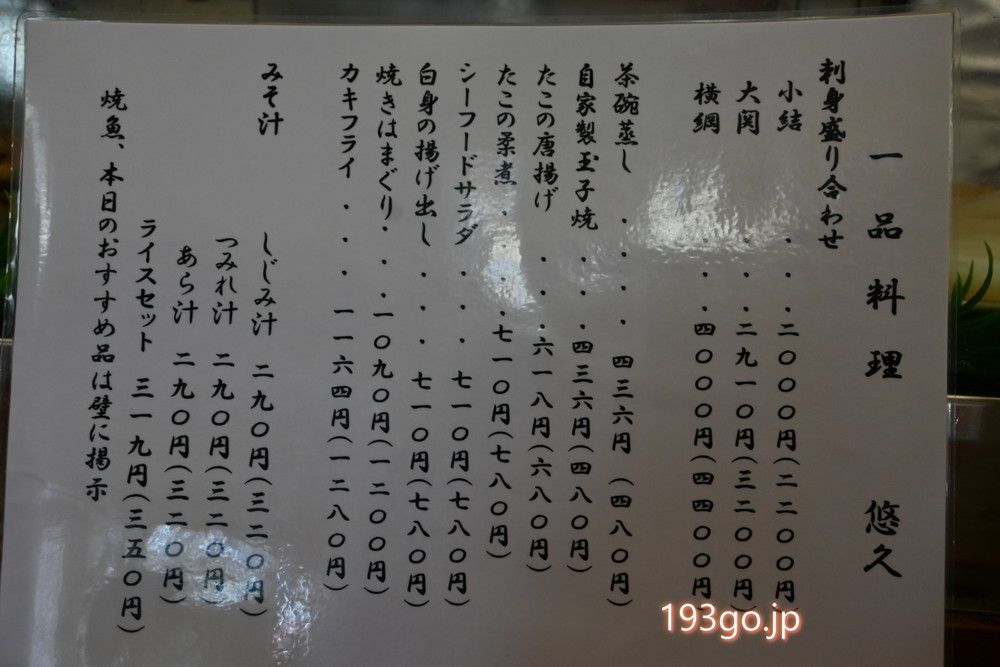 一品料理 悠久
刺身盛り合わせ
小結 ・・・二〇〇〇円(二二〇〇円)
大関 ・・・二九一〇円(三二〇〇円)
横綱 ・・・四〇〇〇円(四四〇〇円)
茶碗蒸し ・・・・四三六円(四八〇円)
自家製玉子焼 ・・・四三六円(四八〇円)
たこの唐揚げ ・・・六一八円(六八〇円)
たこの柔煮・・・・七一〇円(七八〇円)
シーフードサラダ ・・・七一〇円(七八〇円)
白身の揚げ出し ・・・七一〇円(七八〇円)
焼きはまぐり・・・一〇九〇円(一二〇〇円)
カキフライ ・・・一一六四円(一二八〇円)
みそ汁
しじみ汁 二九〇円(三二〇円)
つみれ汁 二九〇円(三二〇円)
あら汁 二九〇円(三二〇円)
ライスセット 三一九円(三五〇円)
焼魚、本日のおすすめ品は壁に掲示
193go.jp